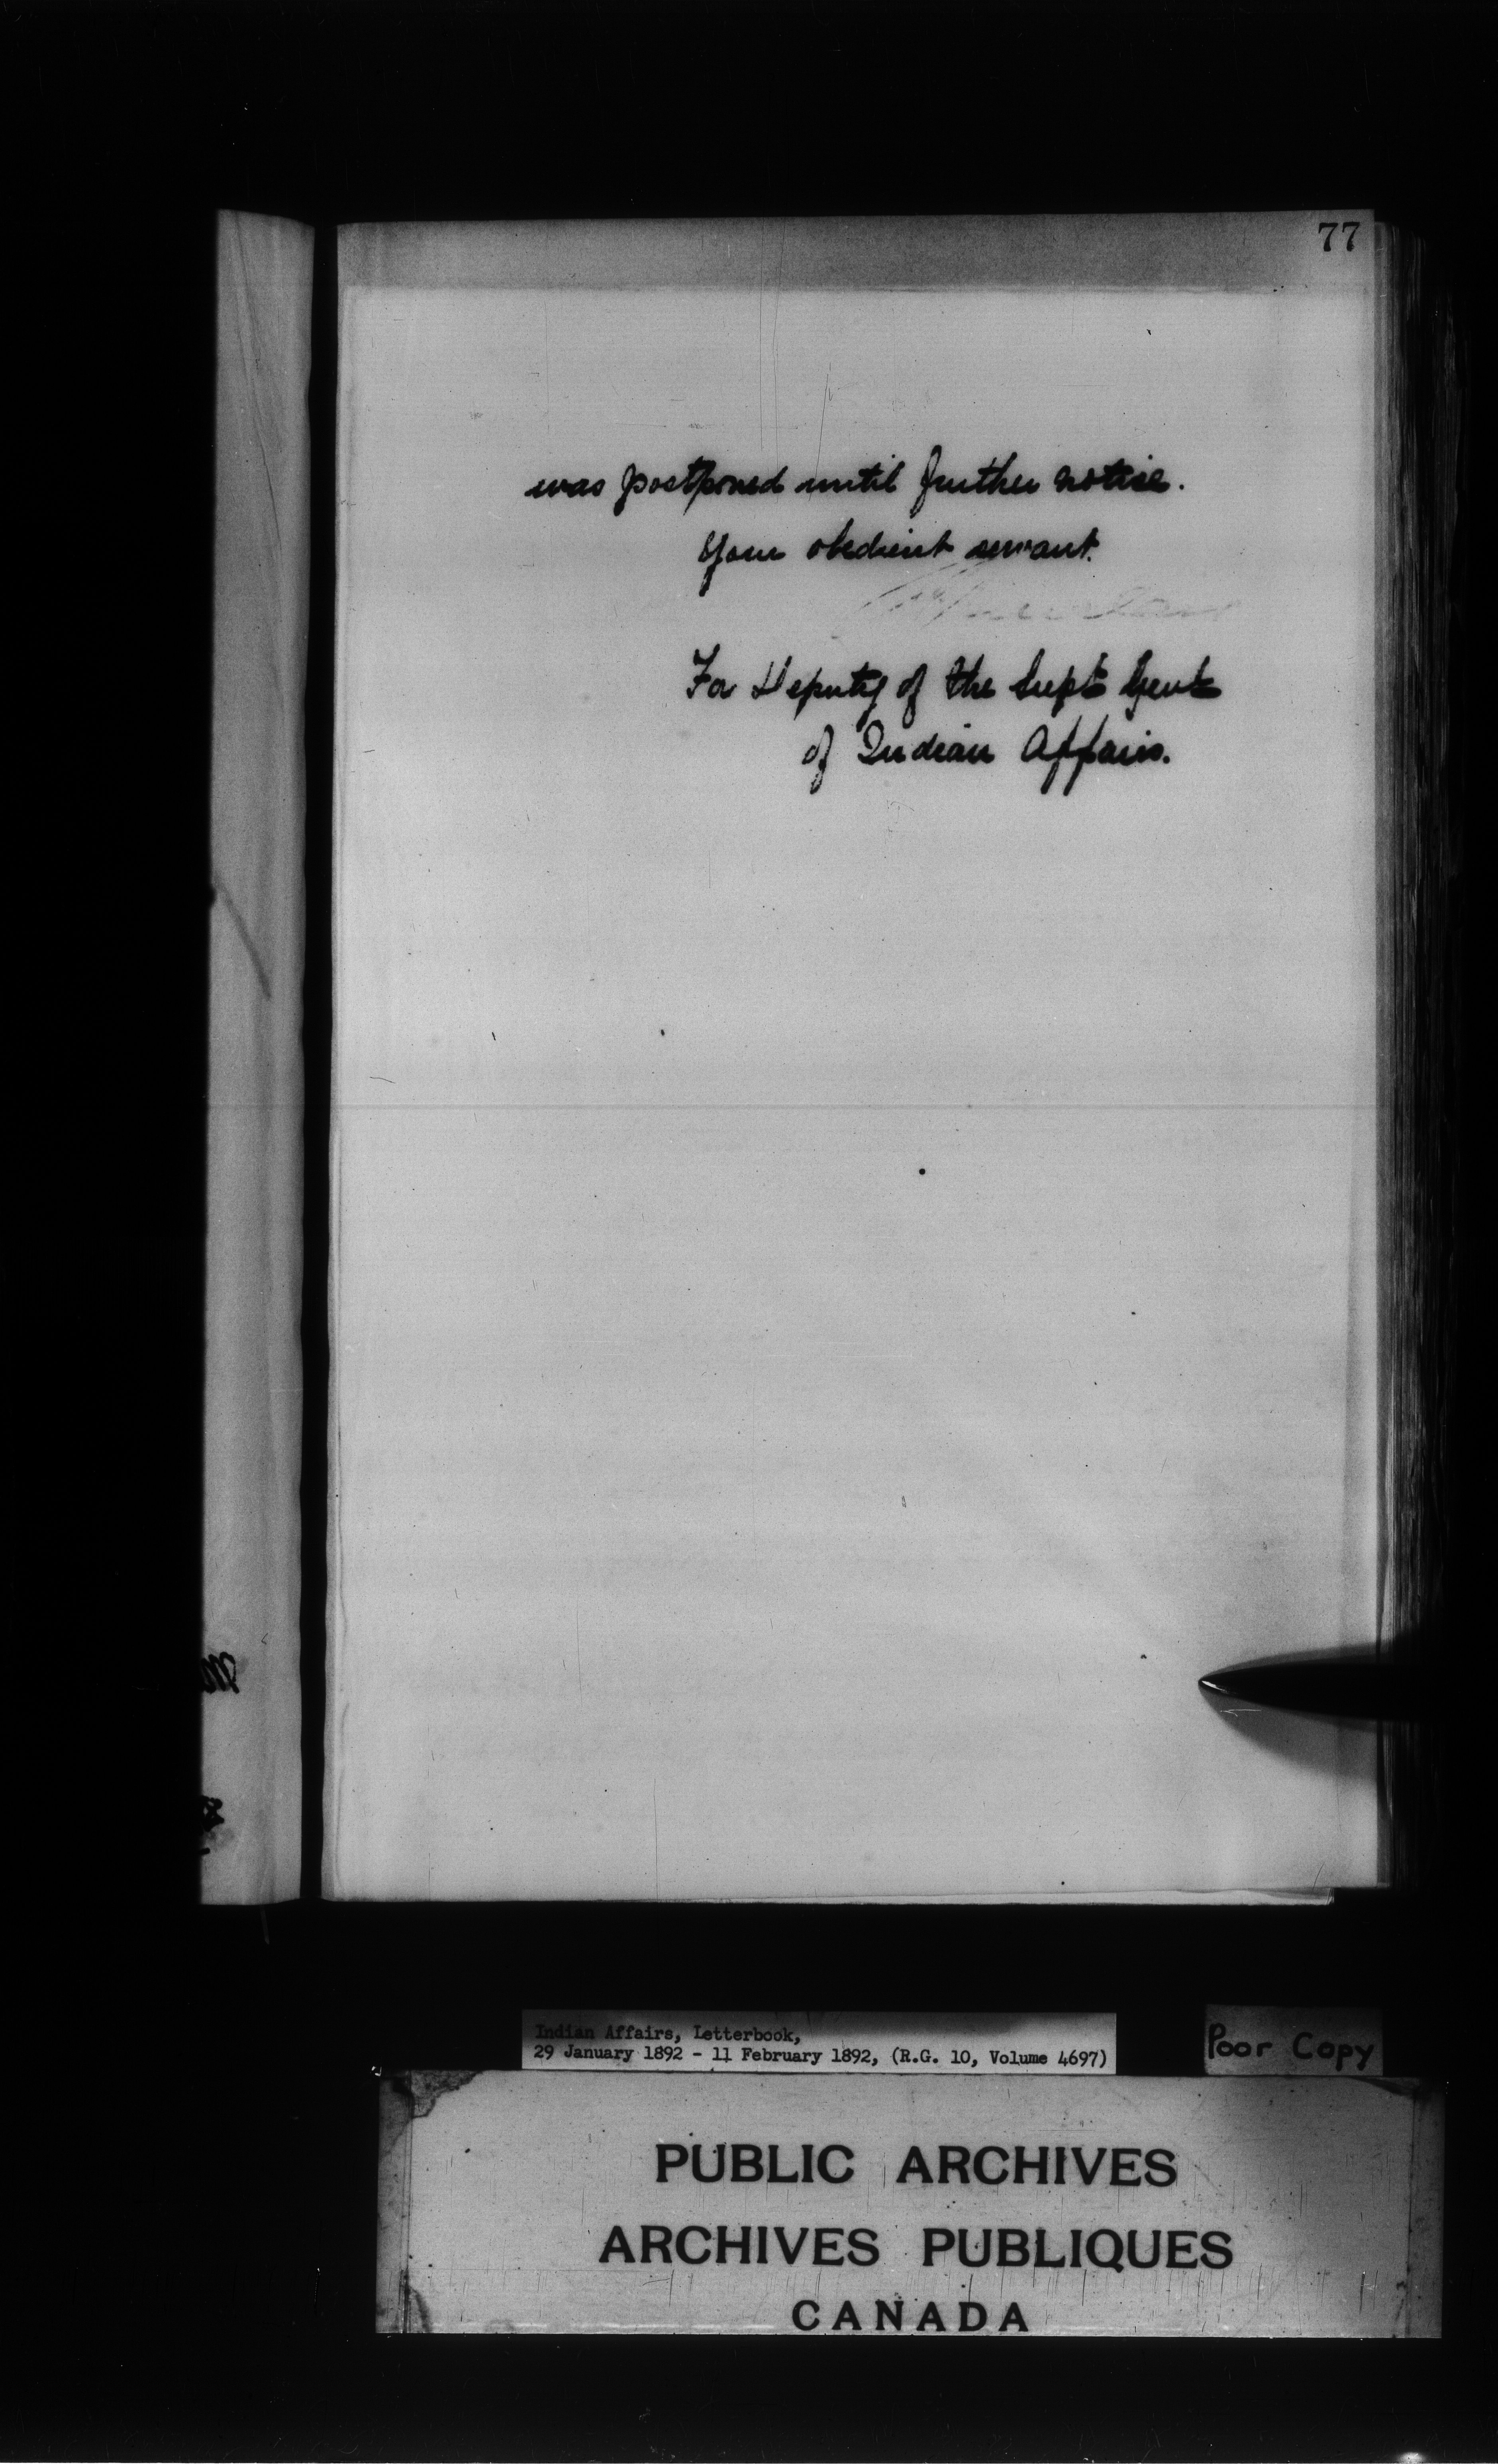 77
was postponed until further notice.
Your obedient servant.
For Deputy of the Supt Genl
of Indian Affairs.
Indian Affairs, Letterbook,
29 January 1892 - 11 February 1892, (R.G. 10, Volume 4697)
Poor Copy
PUBLIC ARCHIVES
ARCHIVES PUBLIQUES
CANADA